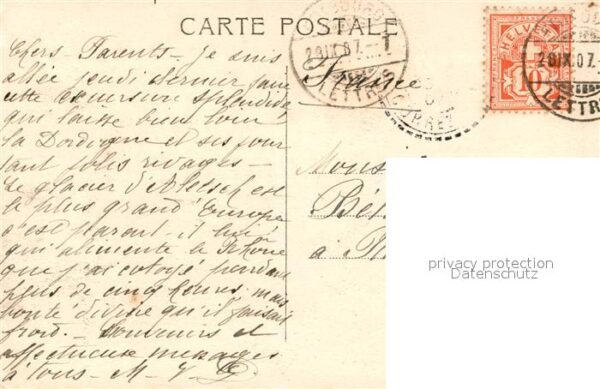 CARTE POSTALE
HELVETIA
10
29.IX.07.
LETTRES
29.IX.07.
LETTR
Chers Parents - je suis
allée jeudi dernier faire
cette excursion splendide
qui laisse bien loin
la Dordogne et ses pour
tant jolis rivages -
Le glacier d'Aletsch est
le plus grand d'Europe
c'est parait-il lui
qui alimente le Rhône
que j'ai cotoyé pendant
plus de cinq heures, mais
bonté divine qu'il faisait
froid. - Souvenirs et
affectueux messages
à tous - M - V
France
Mons
Bé
à
privacy protection
Datenschutz